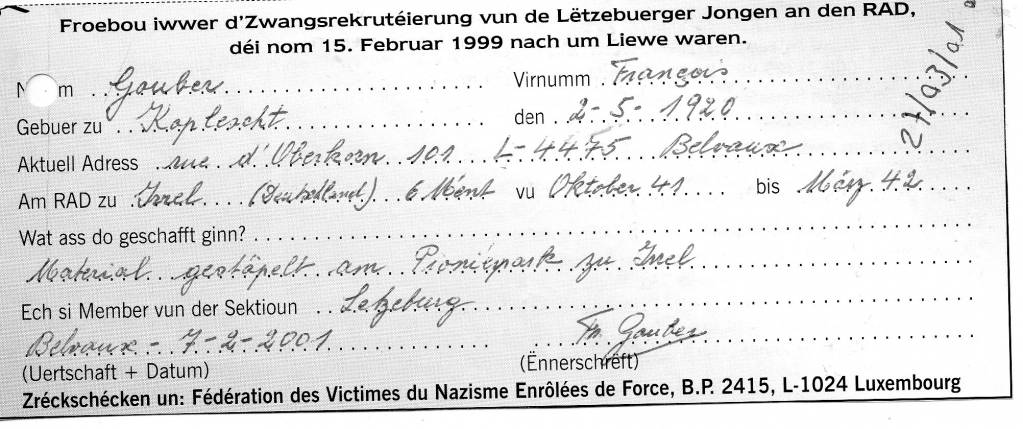 Froebou iwwer d'Zwangsrekrutéierung vun de Lëtzebuerger Jongen an den RAD,
déi nom 15. Februar 1999 nach um Liewe waren.
N m Gouber Virnumm François
Gebuer zu Koplescht den 2-5-1920
Aktuell Adress rue d'Oberkorn 101 L-4475 Belvaux
Am RAD zu Irrel (Deutschland) 6 Mént vu Oktober 41 bis März 42
Wat ass do geschafft ginn?
Material gestäpelt am Pionéerpark zu Irrel
Ech si Member vun der Sektioun Letzeburg
Belvaux - 7-2-2001 Fr. Gouber
(Uertschaft + Datum) (Ënnerschrëft)
Zréckschécken un: Fédération des Victimes du Nazisme Enrôlées de Force, B.P. 2415, L-1024 Luxembourg
27/03/01